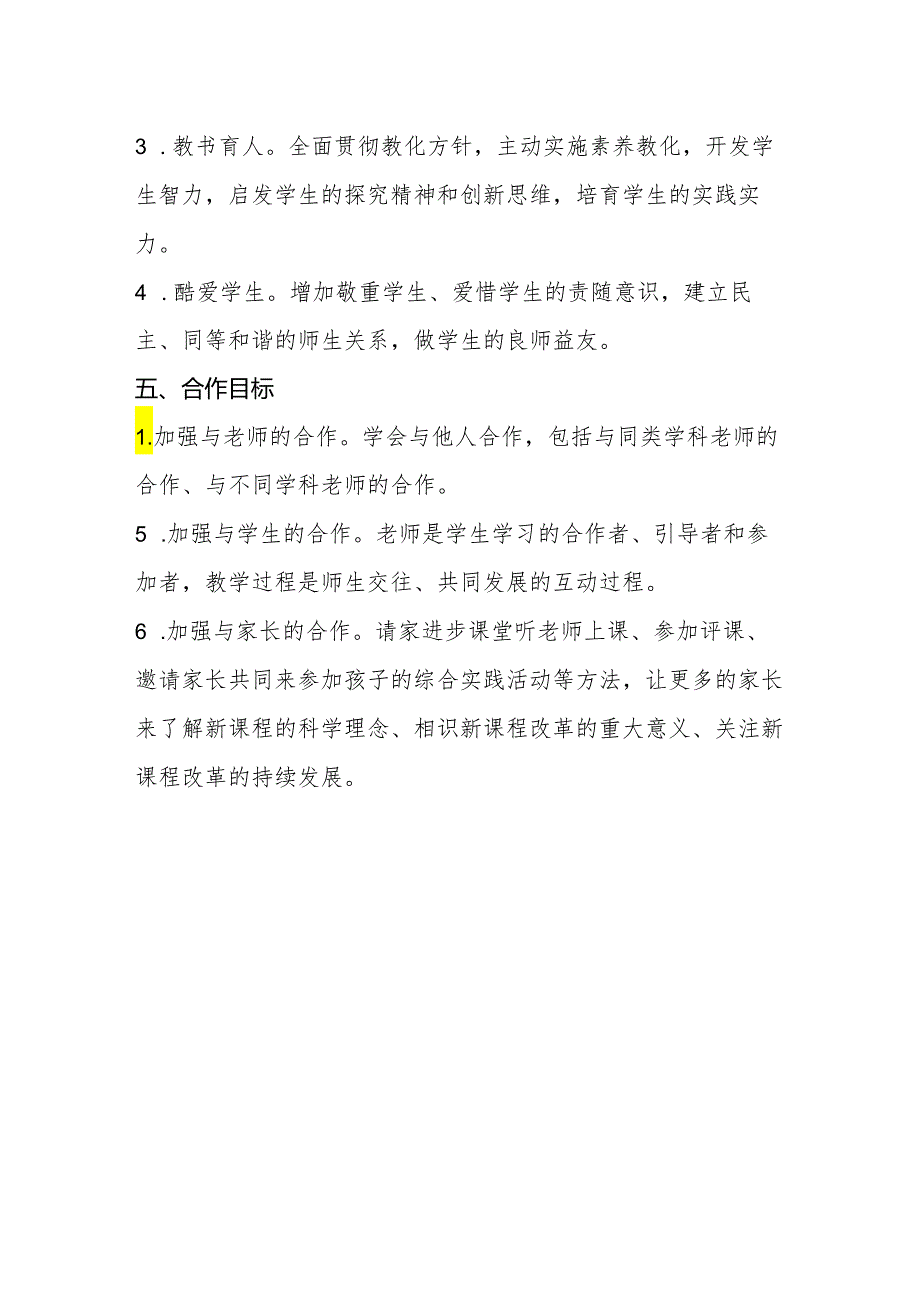 3 .教书育人。全面贯彻教化方针，主动实施素养教化，开发学
生智力，启发学生的探究精神和创新思维，培育学生的实践实
力。
4 .酷爱学生。增加敬重学生、爱惜学生的责随意识，建立民
主、同等和谐的师生关系，做学生的良师益友。
五、合作目标
1.加强与老师的合作。学会与他人合作，包括与同类学科老师的
合作、与不同学科老师的合作。
5 .加强与学生的合作。老师是学生学习的合作者、引导者和参
加者，教学过程是师生交往、共同发展的互动过程。
6 .加强与家长的合作。请家进步课堂听老师上课、参加评课、
邀请家长共同来参加孩子的综合实践活动等方法，让更多的家长
来了解新课程的科学理念、相识新课程改革的重大意义、关注新
课程改革的持续发展。